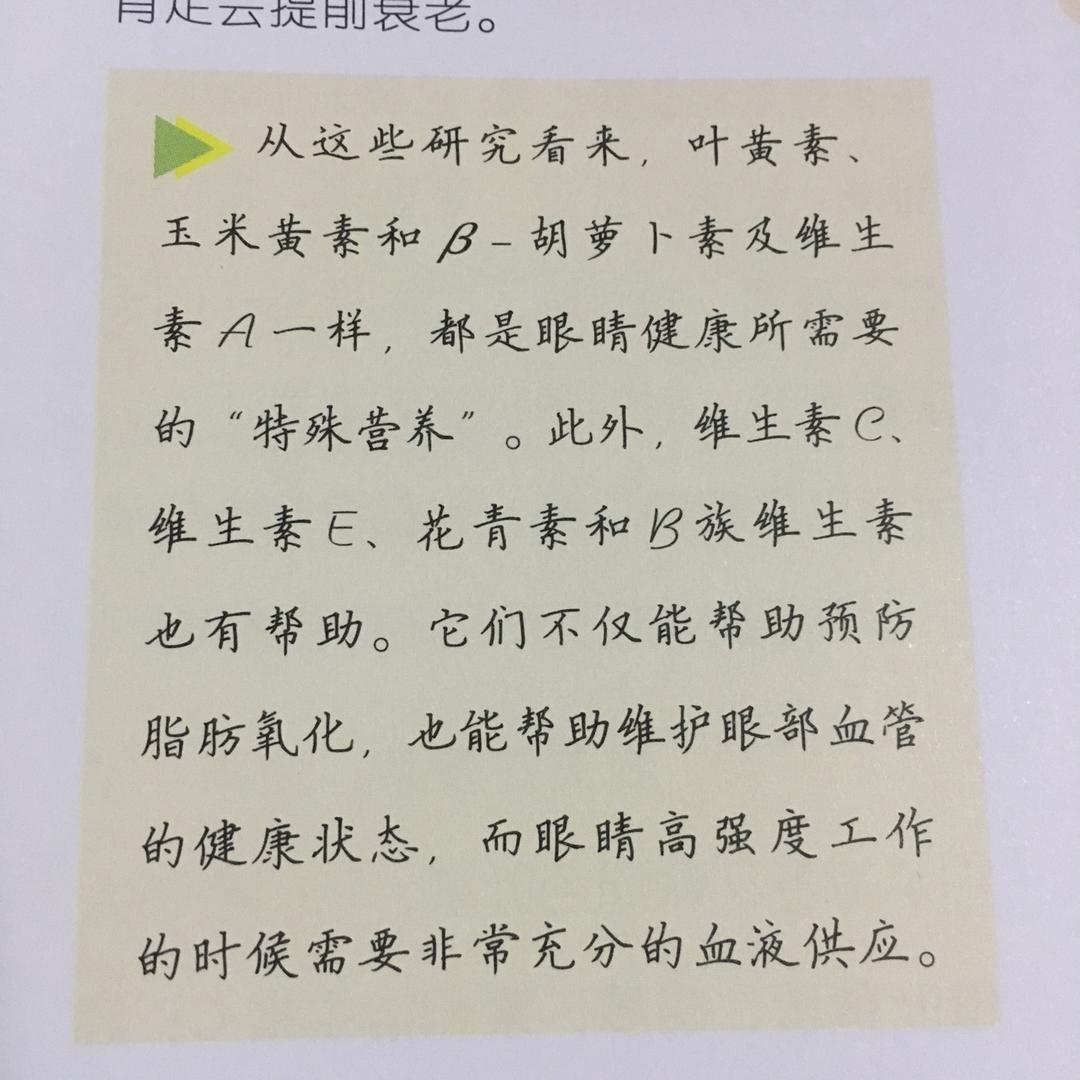 肯定会提前衰老。
从这些研究看来，叶黄素、
玉米黄素和β-胡萝卜素及维生
素A一样，都是眼睛健康所需要
的“特殊营养”。此外，维生素C、
维生素E、花青素和B族维生素
也有帮助。它们不仅能帮助预防
脂肪氧化，也能帮助维护眼部血管
的健康状态，而眼睛高强度工作
的时候需要非常充分的血液供应。